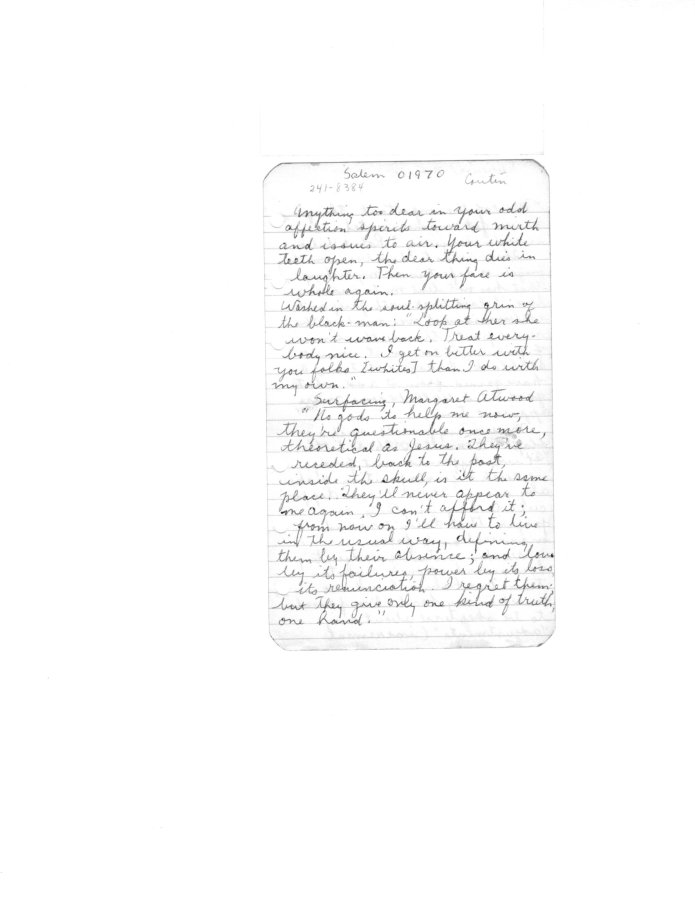 Salem 01970
241-8384
Anything too dear in your odd
affection spirals toward mirth
and issues to air. Your white
teeth open, the dear thing dies in
laughter. Then your face is
whole again.
Washed in the soul-splitting grin of
the black-man: "Look at her she
won't wave back. Treat every-
body nice. I get on better with
you folks [whites] than I do with
my own."
Surfacing, Margaret Atwood
"No gods to help me now,
they're questionable once more,
theoretical as Jesus. They've
receded, back to the past,
inside the skull, is it the same
place. They'll never appear to
me again, I can't afford it;
from now on I'll have to live
in the usual way, defining
them by their absence; and love
by its failures, power by its loss,
its renunciation. I regret them:
but they give only one kind of truth,
one hand."